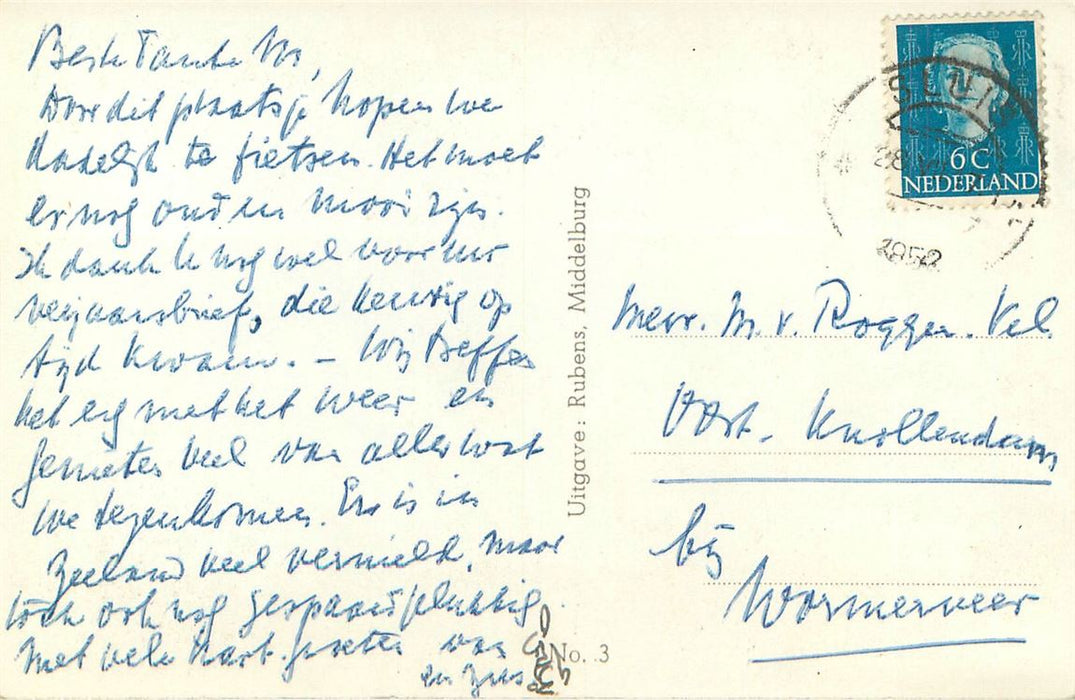 Beste Tante
Door dit plaatsje hopen we
dadelijk te fietsen. Het moet
er nog oud en mooi zijn.
Ik dank U nog wel voor uw
verjaarsbrief, die keurig op
tijd kwam. – Wij treffen
het erg met het weer en
genieten veel van alles wat
we tegenkomen. Er is in
Zeeland veel vernield, maar
toch ook nog gespaard gelukkig.
Met vele hart. groeten van
en Zus
Uitgave: Rubens, Middelburg
No. 3
6 C
NEDERLAND
SLUIS
1952
Mevr. M. v. Roggen. Vel
Oost. Knollendam
bij
Wormerveer